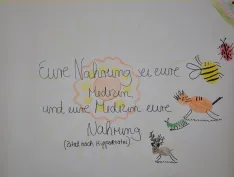 Eure Nahrung sei eure
Medizin
und eure Medizin eure
Nahrung
(Zitat nach Hippokrates)